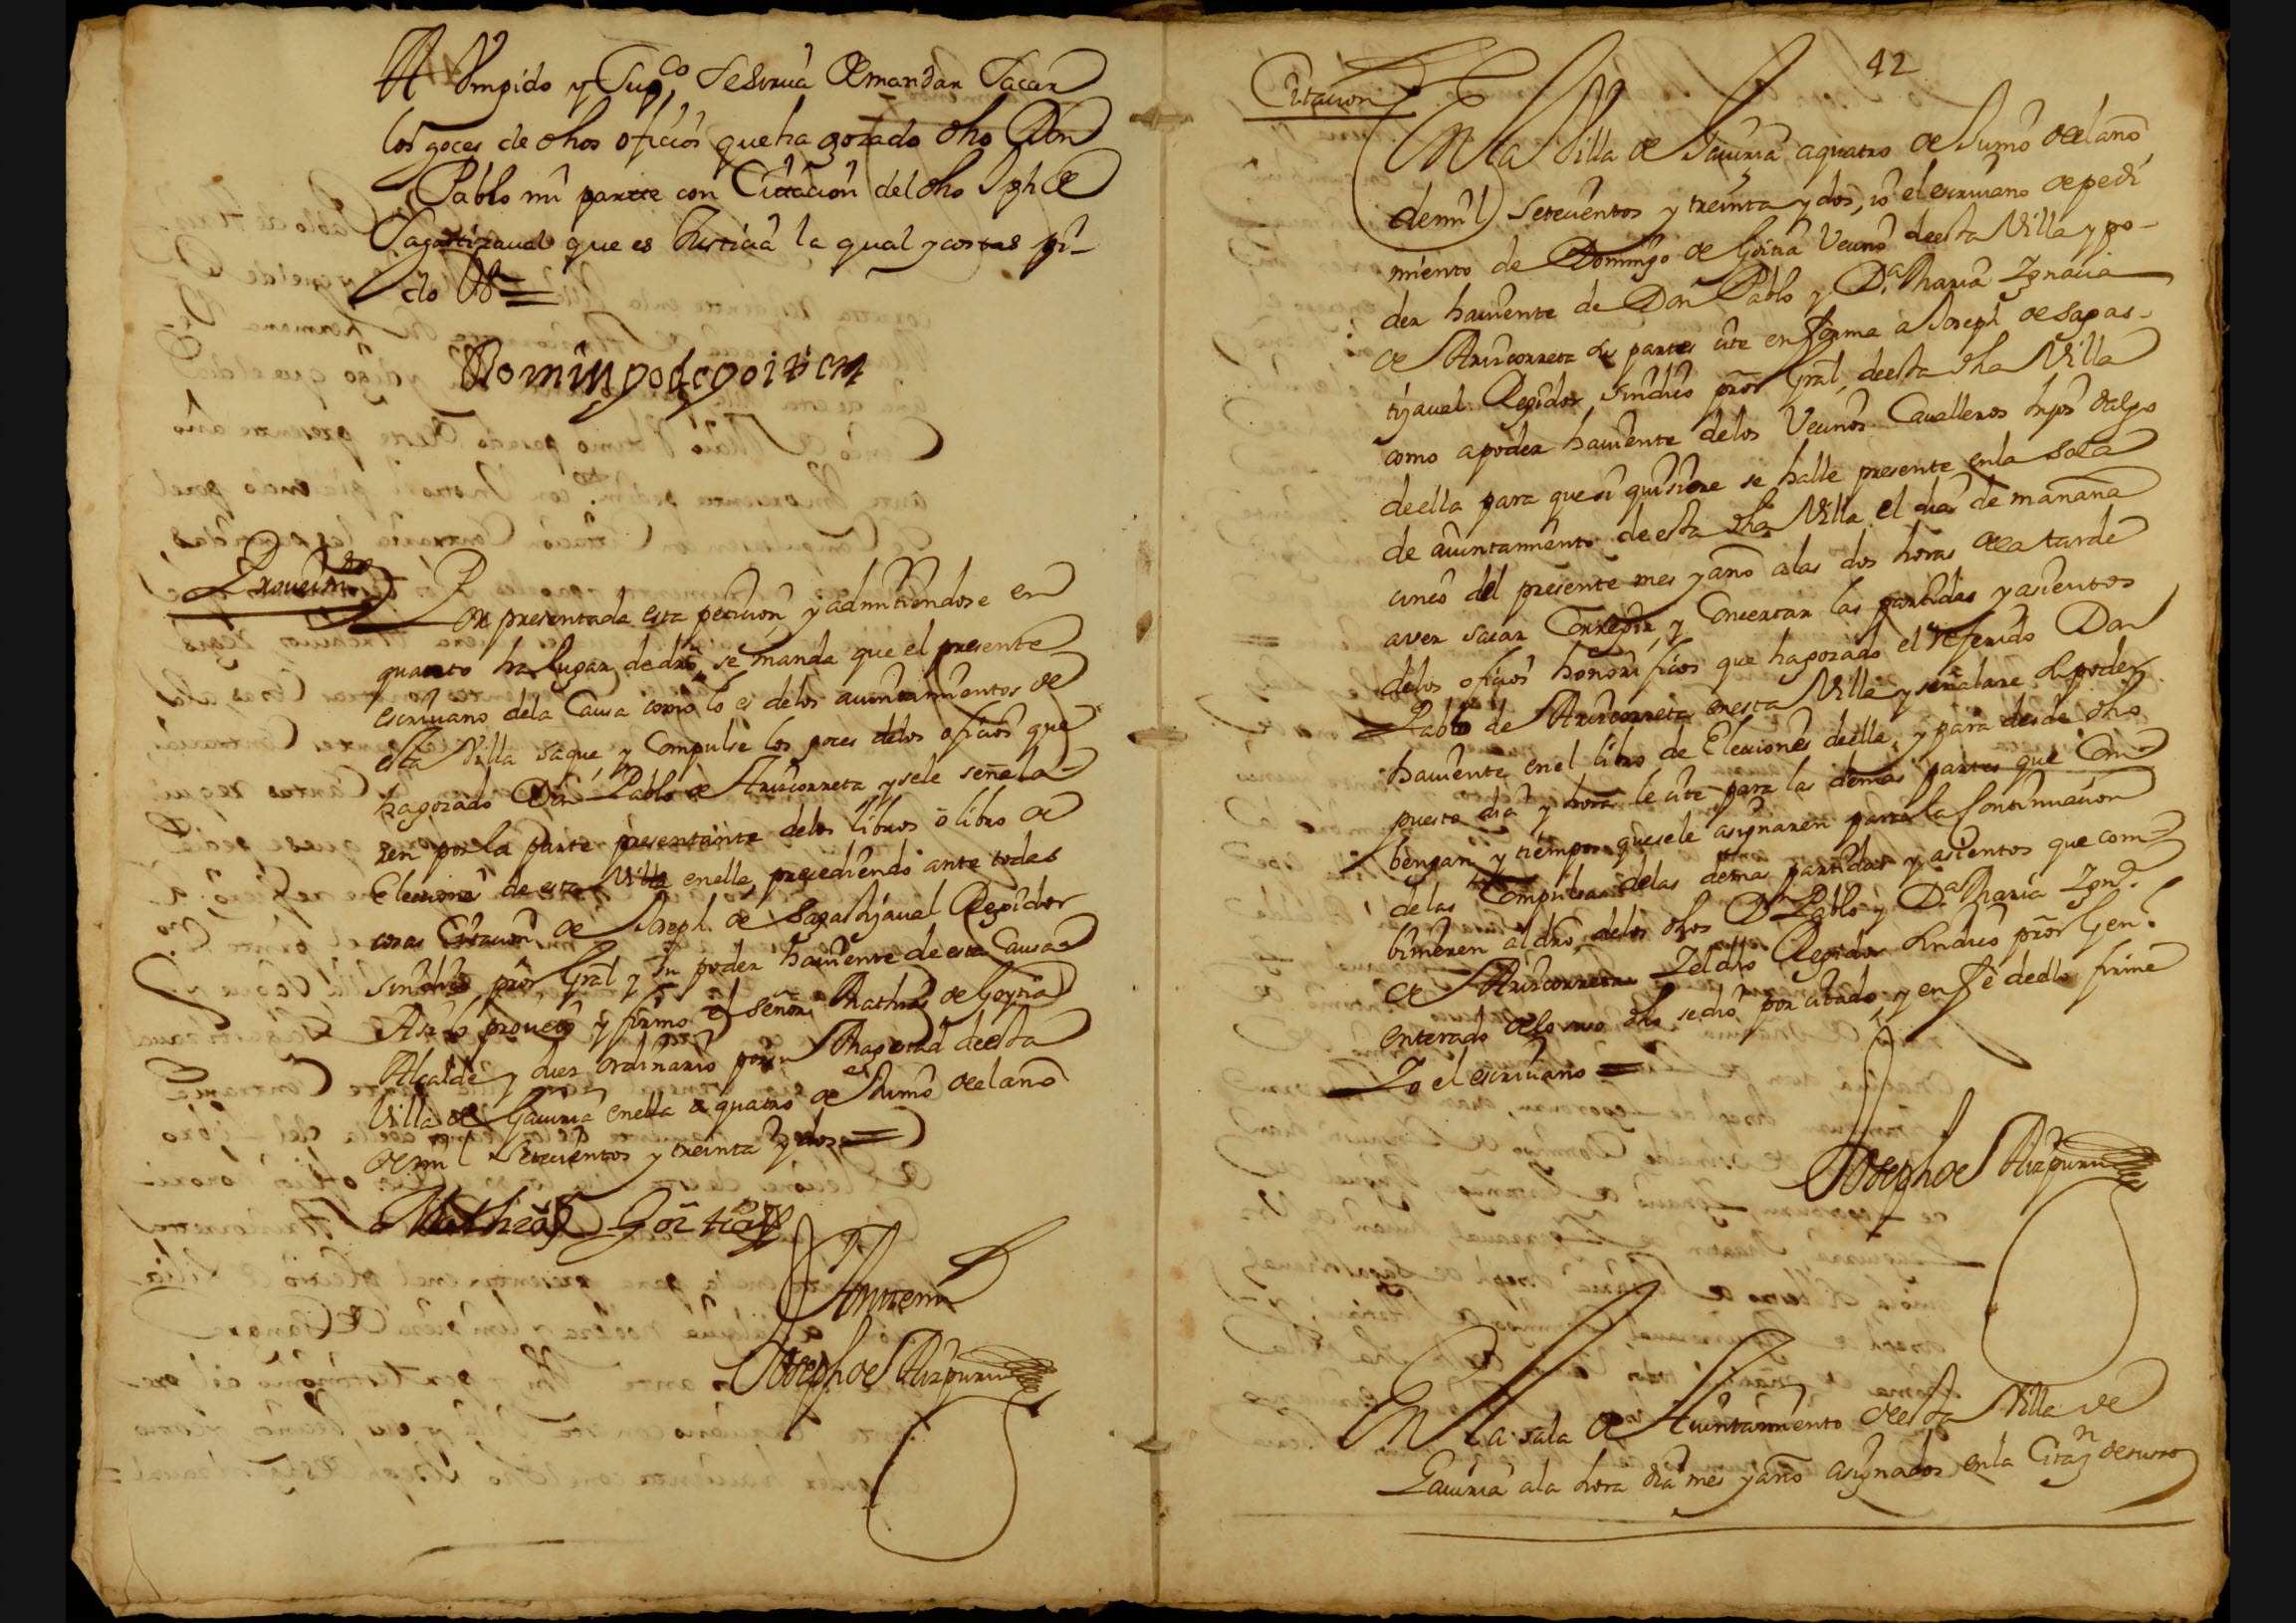 A Vm pido y Sup.co se sirva de mandar sacar
los goces de dhos oficios que ha gozado dho Don
Pablo mi partte con Cittacion del dho Jph de
Sagastizaval que es Justicia la qual y costas pi-
do &a
Domingo de goitia
Proveim.to
Por presentada esta peticion y admitiendose en
quanto ha lugar de dro, se manda que el presente
escrivano dela Causa como lo es delos aiuntamientos de
esta Villa saque, y Compulse los goces delos oficios que
ha gozado Don Pablo de Aruicorreta y se le señala-
ren por la parte presentante delos libros ô libro de
Elecciones de esta Villa en ella, precediendo ante todas
cosas Citacion de Joseph de Sagastizaval Regidor
sindico pror Gral y su poder haviente de esta Causa
Asi lo proveiô y firmo el señor Mathias de Goytia
Alcalde y Juez ordinario por su Magestad de esta
Villa de Gaviria en ella a quatro de Junio del año
de mil setecientos y treinta y dos
Mathias Goitia
Antemi
Joseph de Aizpuru
42
Citacion
En la Villa de Gaviria a quatro de Junio del año
de mil setecientos y treinta y dos, io el escrivano de pedi
miento de Domingo de Goitia Vecino de esta Villa y po-
der haviente de Don Pablo y D.a Maria Ignacia
de Aruicorreta sus partes cite en forma a Joseph de Sagas-
tizaval Regidor, sindico pror Gral, de esta dha Villa
como a poder haviente delos Vecinos Cavalleros hijos dalgo
de ella para que si quisiere se halle presente en la sala
de aiuntamiento de esta dha Villa el dia de mañana
cinco del presente mes y año alas dos horas dela tarde
a ver sacar Corregir, y Concertar las partidas y asientos
delos oficios honorificos que ha gozado el referido Don
Pablo de Aruicorreta en esta Villa y señalare su poder
haviente en el libro de Elecciones de ella, y para desde dho
puesto dia y hora le cite para las demas partes que Com-
bengan y tiempos que se le asignaren para la Continuacion
de las Compulsas delas demas partidas y asientos que com-
binieren al dro, delos dhos Dn Pablo y D.a Maria Ign.a
de Aruicorreta Y el dho Regidor sindico pror Gen.l
enterado delo suso dho se dio por citado, y en fe de ello firme
Yo el escrivano
Joseph de Aizpuru
En la sala de Aiuntamiento de esta Villa de
Gaviria ala hora dia mes y año asignados en la Citaz.n de suso